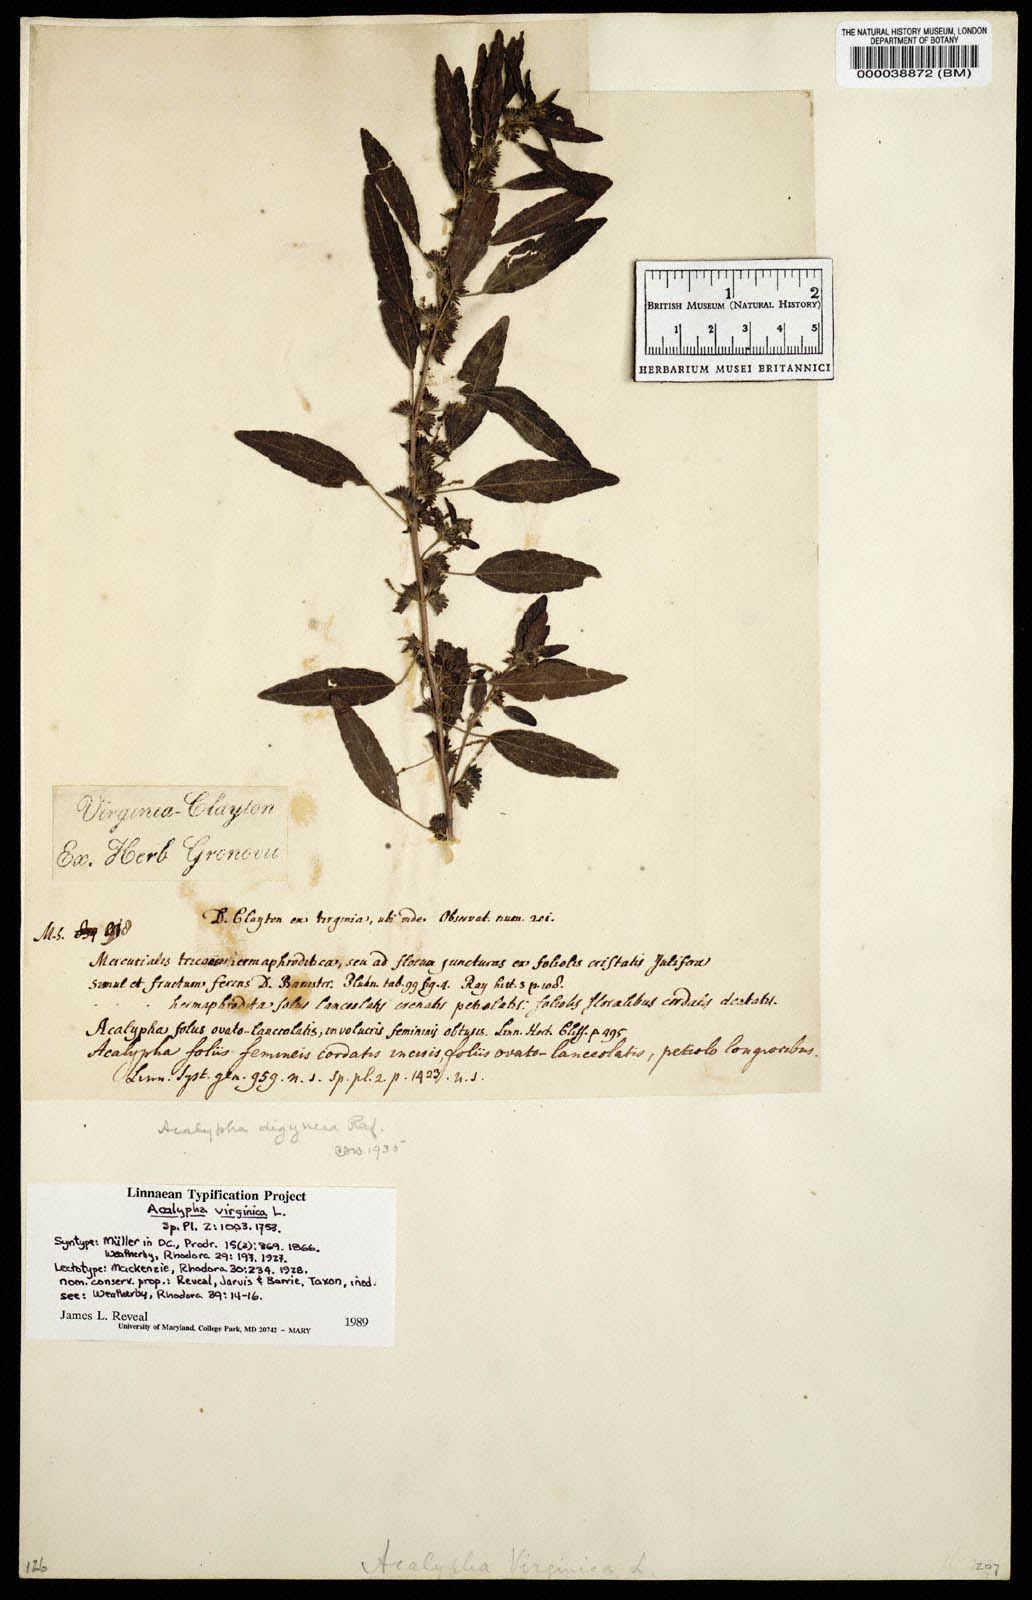 THE NATURAL HISTORY MUSEUM, LONDON
DEPARTMENT OF BOTANY
000038872 (BM)
1 2
BRITISH MUSEUM (NATURAL HISTORY)
1 2 3 4 5
HERBARIUM MUSEI BRITANNICI
Virginia-Clayton
Ex. Herb Gronovii
D. Clayton ex Virginia, ubi vide Observat. num. 201.
M.S. 918
Mercurialis tricoccos hermaphroditica, seu ad florum juncturas ex foliolis cristatis Julifera
simul et fructum ferens D. Banister. Plukn. tab. 99 fig. 4. Ray hist. 3 p. 108.
hermaphrodita foliis lanceolatis crenatis petiolatis; foliolis floralibus cordatis dentatis.
Acalypha foliis ovato-lanceolatis, involucris femininis obtusis. Linn. Hort. Cliff. p. 495.
Acalypha foliis femineis cordatis incisis, foliis ovato-lanceolatis, petiolo longioribus.
Linn. Syst. gen. 959. n. 1. Sp. pl. 2. p. 1423. n. 1.
Acalypha digyneia Raf.
1935
Linnaean Typification Project
Acalypha virginica L.
Sp. Pl. 2: 1003. 1753.
Syntype: Müller in DC., Prodr. 15(2): 869. 1866.
Weatherby, Rhodora 29: 197. 1927.
Lectotype: Mackenzie, Rhodora 30: 234. 1928.
nom. conserv. prop.: Reveal, Jarvis & Barrie, Taxon, ined.
see: Weatherby, Rhodora 39: 14-16.
James L. Reveal 1989
University of Maryland, College Park, MD 20742 - MARY
126
Acalypha Virginica L.
207